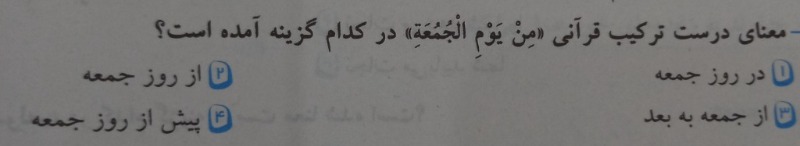 - معنای درست ترکیب قرآنی «مِنْ یَوْمِ الْجُمُعَةِ» در کدام گزینه آمده است؟
۱ در روز جمعه ۲ از روز جمعه
۳ از جمعه به بعد ۴ پیش از روز جمعه